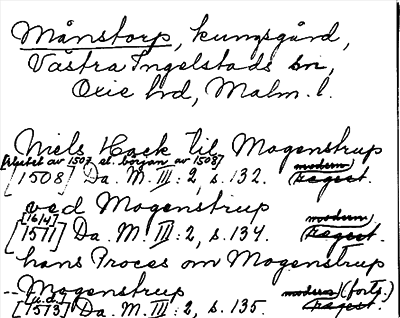 Månstorp, kungsgård,
Västra Ingelstads sn,
Oxie hd, Malm. l.
Niels Hack til Mogenstrup
[slutet av 1507 el. början av 1508]
[1508] Da. M. III: 2, s. 132. modern Regest.
ved Mogenstrup
[1614]
[1571] Da. M. III: 2, s. 134. modern Regest.
hans Proces om Mogenstrup
-- Mogenstrup modern (forts.)
[1573] Da. M. III: 2, s. 135. Regest.